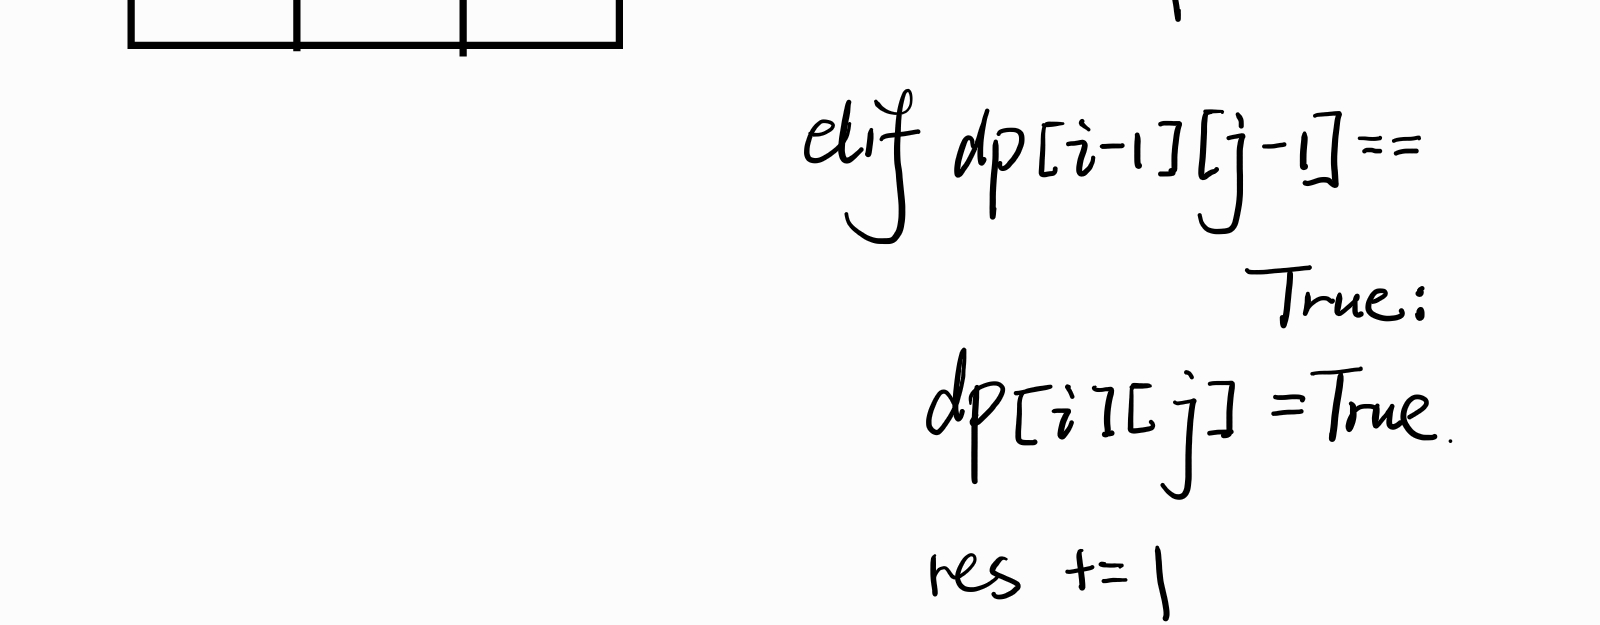 elif dp[i-1][j-1] ==
True:
dp[i][j] = True.
res += 1